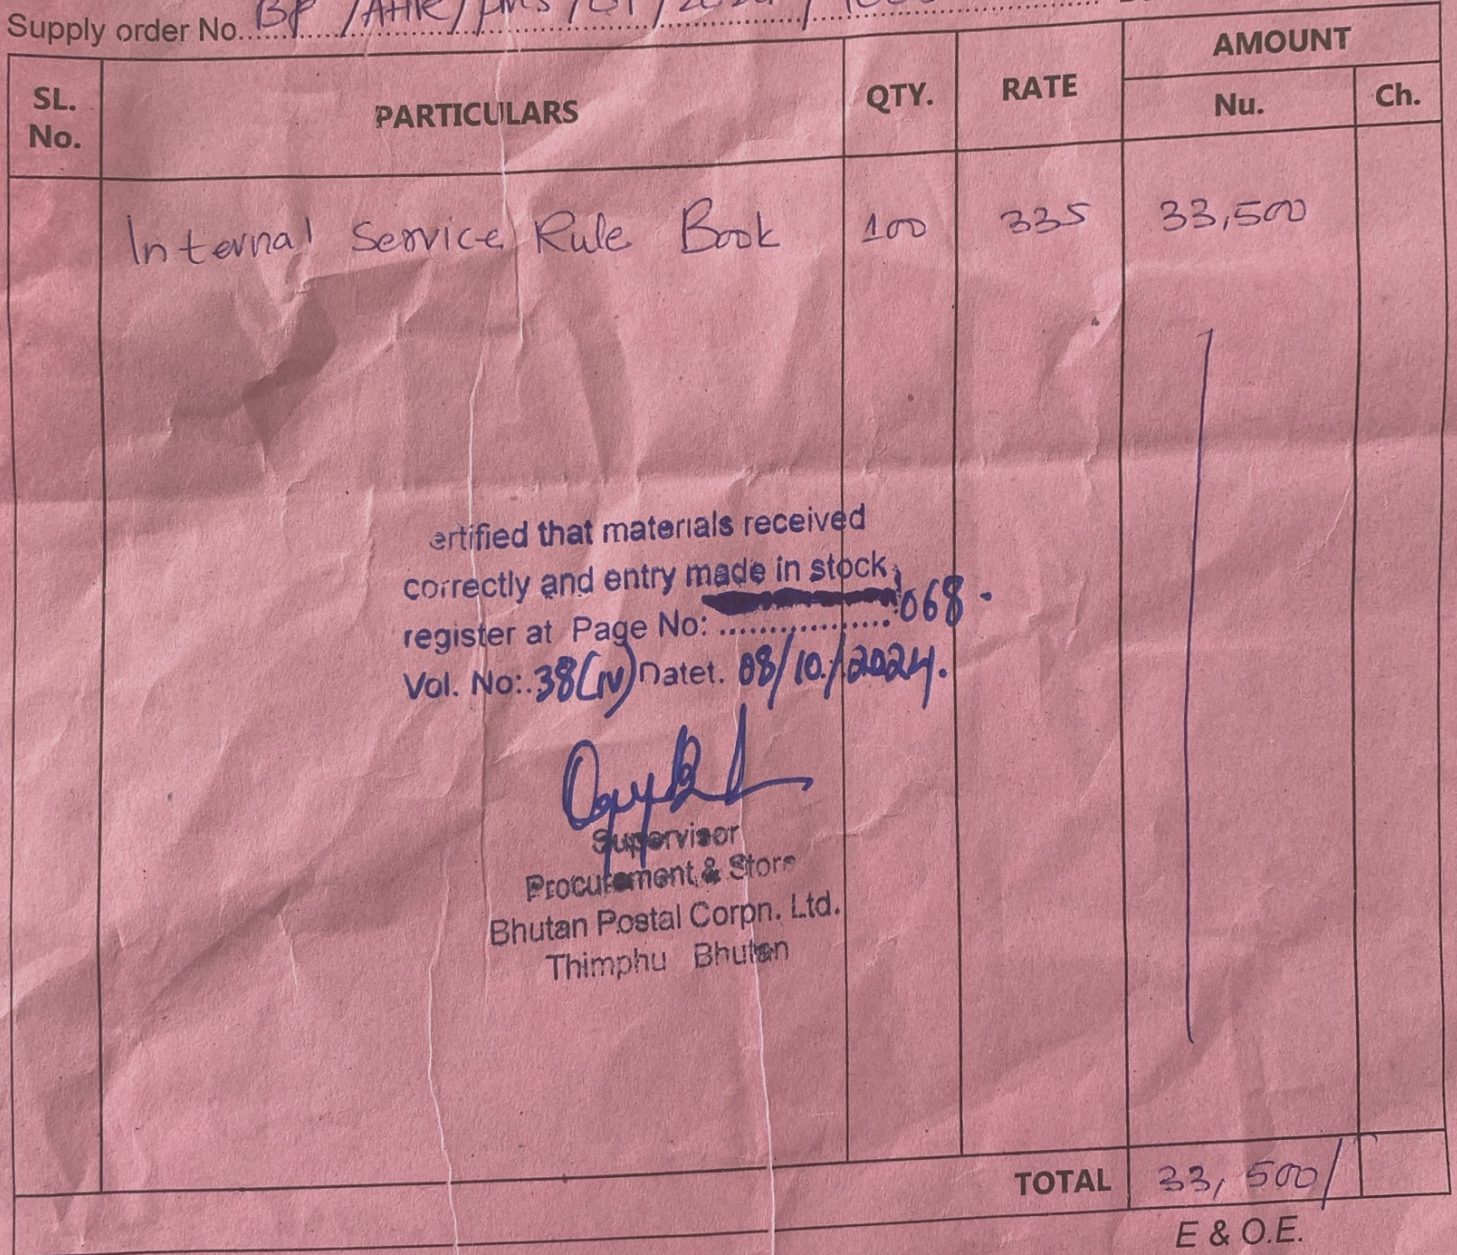 Supply order No.
AMOUNT
SL. No. PARTICULARS QTY. RATE Nu. Ch.
Internal Service Rule Book 100 335 33,500
ertified that materials received
correctly and entry made in stock
register at Page No: 068.
Vol. No: 38(IV) Datet. 08/10/2024.
Supervisor
Procurement & Store
Bhutan Postal Corpn. Ltd.
Thimphu Bhutan
TOTAL 33,500/
E & O.E.